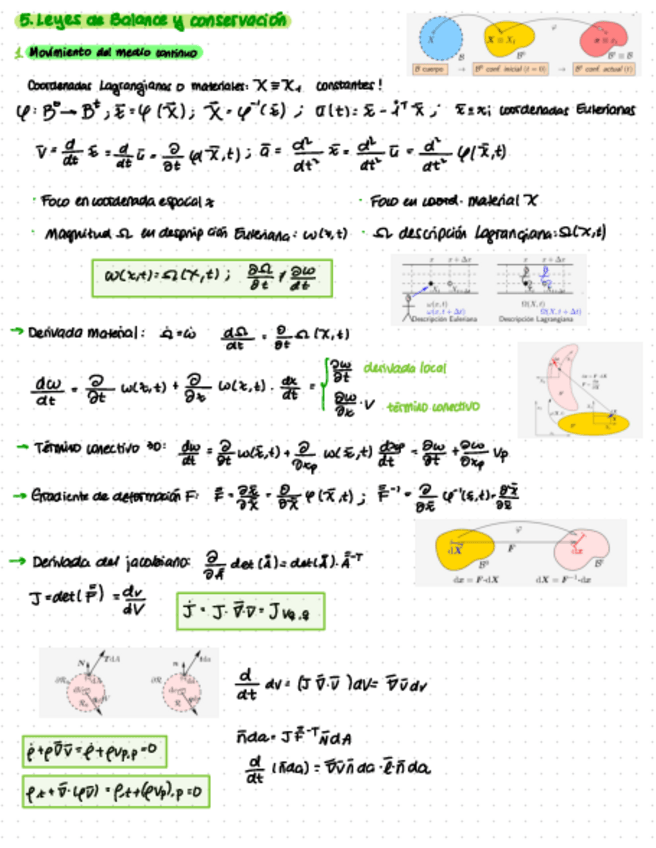 5. Leyes de Balance y conservación
1. Movimiento del medio continuo
B cuerpo → B⁰ conf. inicial (t = 0) → Bᵗ conf. actual (t)
Coordenadas Lagrangianas o materiales: X ≡ X₁ constantes!
φ: B⁰ → Bᵗ; x̄ = φ(X̄); X̄ = φ⁻¹(x̄); ū(t) = x̄ - X̄; x̄ ≡ xᵢ coordenadas Eulerianas
v̄ = d/dt x̄ = d/dt ū = ∂/∂t φ(X̄,t); ā = d²/dt² x̄ = d²/dt² ū = d²/dt² φ(X̄,t)
· Foco en coordenada espacial x
· Foco en coord. material X
· Magnitud Ω en descripción Euleriana: ω(x,t)
· Ω descripción Lagrangiana: Ω(X,t)
ω(x,t) = Ω(X,t); ∂Ω/∂t ≠ ∂ω/∂t
Descripción Euleriana
Descripción Lagrangiana
→ Derivada Material: Ω̇ = ω̇ dΩ/dt = ∂/∂t Ω(X,t)
dω/dt = ∂/∂t ω(x,t) + ∂/∂x ω(x,t) · dx/dt = { ∂ω/∂t derivada local
∂ω/∂x · v término conectivo
→ Término conectivo 3D: dω/dt = ∂/∂t ω(x̄,t) + ∂/∂xp ω(x̄,t) dxp/dt = ∂ω/∂t + ∂ω/∂xp vp
→ Gradiente de deformación F: F̿ = ∂x̄/∂X̄ = ∂/∂X̄ φ(X̄,t); F̿⁻¹ = ∂/∂x̄ φ⁻¹(x̄,t) = ∂X̄/∂x̄
dx = F·dX dX = F⁻¹·dx
→ Derivada del jacobiano: ∂/∂A̿ det(A̿) = det(A̿)·A̿⁻ᵀ
J = det(F̿) = dv/dV
J̇ = J·∇̄·v̄ = J vq,q
d/dt dv = (J ∇̄·v̄)dV = ∇̄v̄ dv
n̄da = J F̿⁻ᵀ N̄dA
d/dt (n̄da) = ∇̄v̄ n̄ da - l̿·n̄ da
ρ̇ + ρ∇̄v̄ = ρ̇ + ρvp,p = 0
ρ,t + ∇̄·(ρv̄) = ρ,t + (ρvp),p = 0